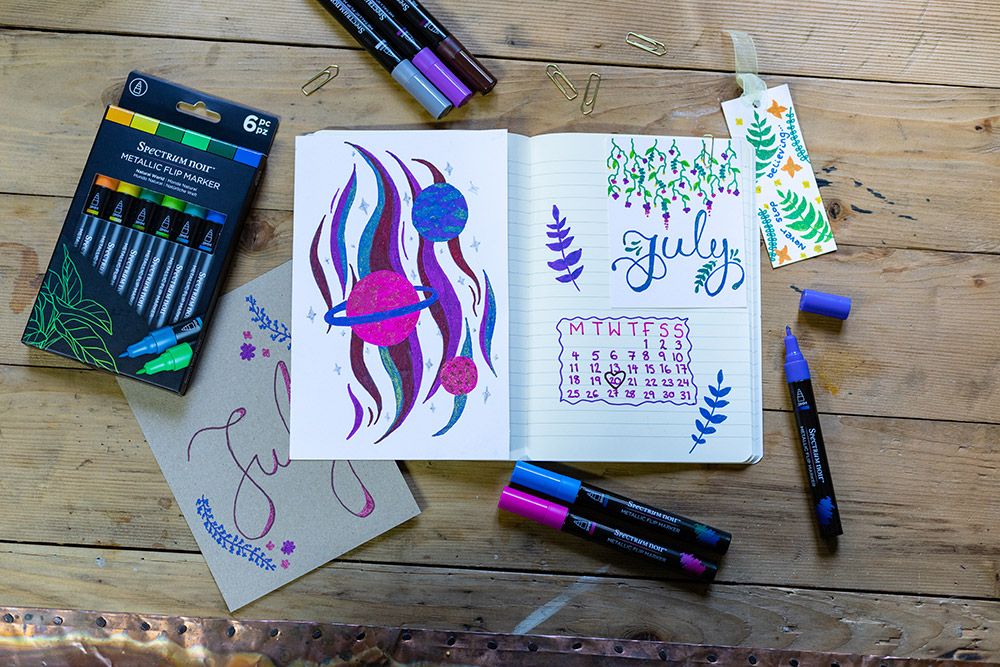 SPECTRUM NOIR
SPECTRUM NOIR
6 pc
pz
SPECTRUM NOIR™
METALLIC FLIP MARKER
Natural World / Monde Naturel
Mundo Natural / Natürliche Welt
July
july
M T W T F S S
1 2 3
4 5 6 7 8 9 10
11 12 13 14 15 16 17
18 19 20 21 22 23 24
25 26 27 28 29 30 31
Never stop
believing...
SPECTRUM NOIR™
METALLIC FLIP MARKER
SPECTRUM NOIR™
METALLIC FLIP MARKER
SPECTRUM NOIR
METALLIC FLIP MARKER